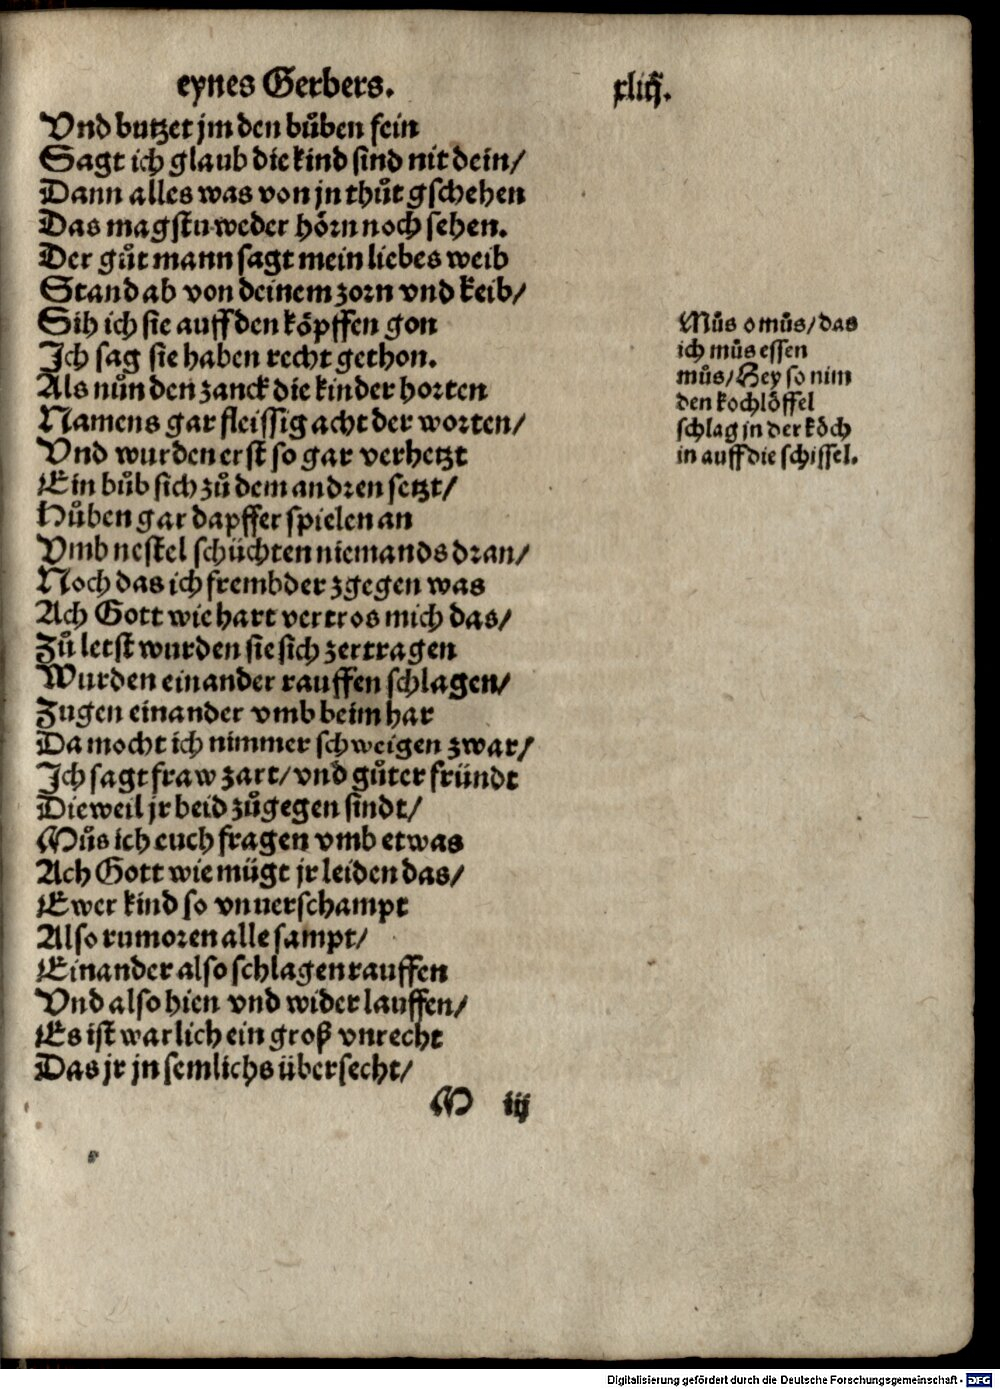 eynes Gerbers. xliij.
Vnd butzet jm den bůben fein
Sagt ich glaub die kind sind nit dein/
Dann alles was von jn thůt gschehen
Das magstu weder hörn noch sehen.
Der gůt mann sagt mein liebes weib
Stand ab von deinem zorn vnd keib/
Sih ich sie auff den köpffen gon
Ich sag sie haben recht gethon.
Als nůn den zanck die kinder horten
Namens gar fleissig acht der worten/
Vnd wurden erst so gar verhetzt
Ein bůb sich zů dem andren setzt/
Hůben gar dapffer spielen an
Vmb nestel schüchten niemands dran/
Noch das ich frembder zgegen was
Ach Gott wie hart vertros mich das/
Zů letst wurden sie sich zertragen
Wurden einander rauffen schlagen/
Zugen einander vmb beim har
Da mocht ich nimmer schweigen zwar/
Ich sagt fraw zart/ vnd gůter fründt
Dieweil jr beid zůgegen sindt/
Můs ich euch fragen vmb etwas
Ach Gott wie mügt jr leiden das/
Ewer kind so vnuerschampt
Also rumoren alle sampt/
Einander also schlagen rauffen
Vnd also hien vnd wider lauffen/
Es ist warlich ein groß vnrecht
Das jr jn semlichs übersecht/
M iij
Můs o můs/ das
ich můs essen
můs/ Hey so nim
den kochlöffel
schlag jn der köch
in auff die schissel.
Digitalisierung gefördert durch die Deutsche Forschungsgemeinschaft - DFG